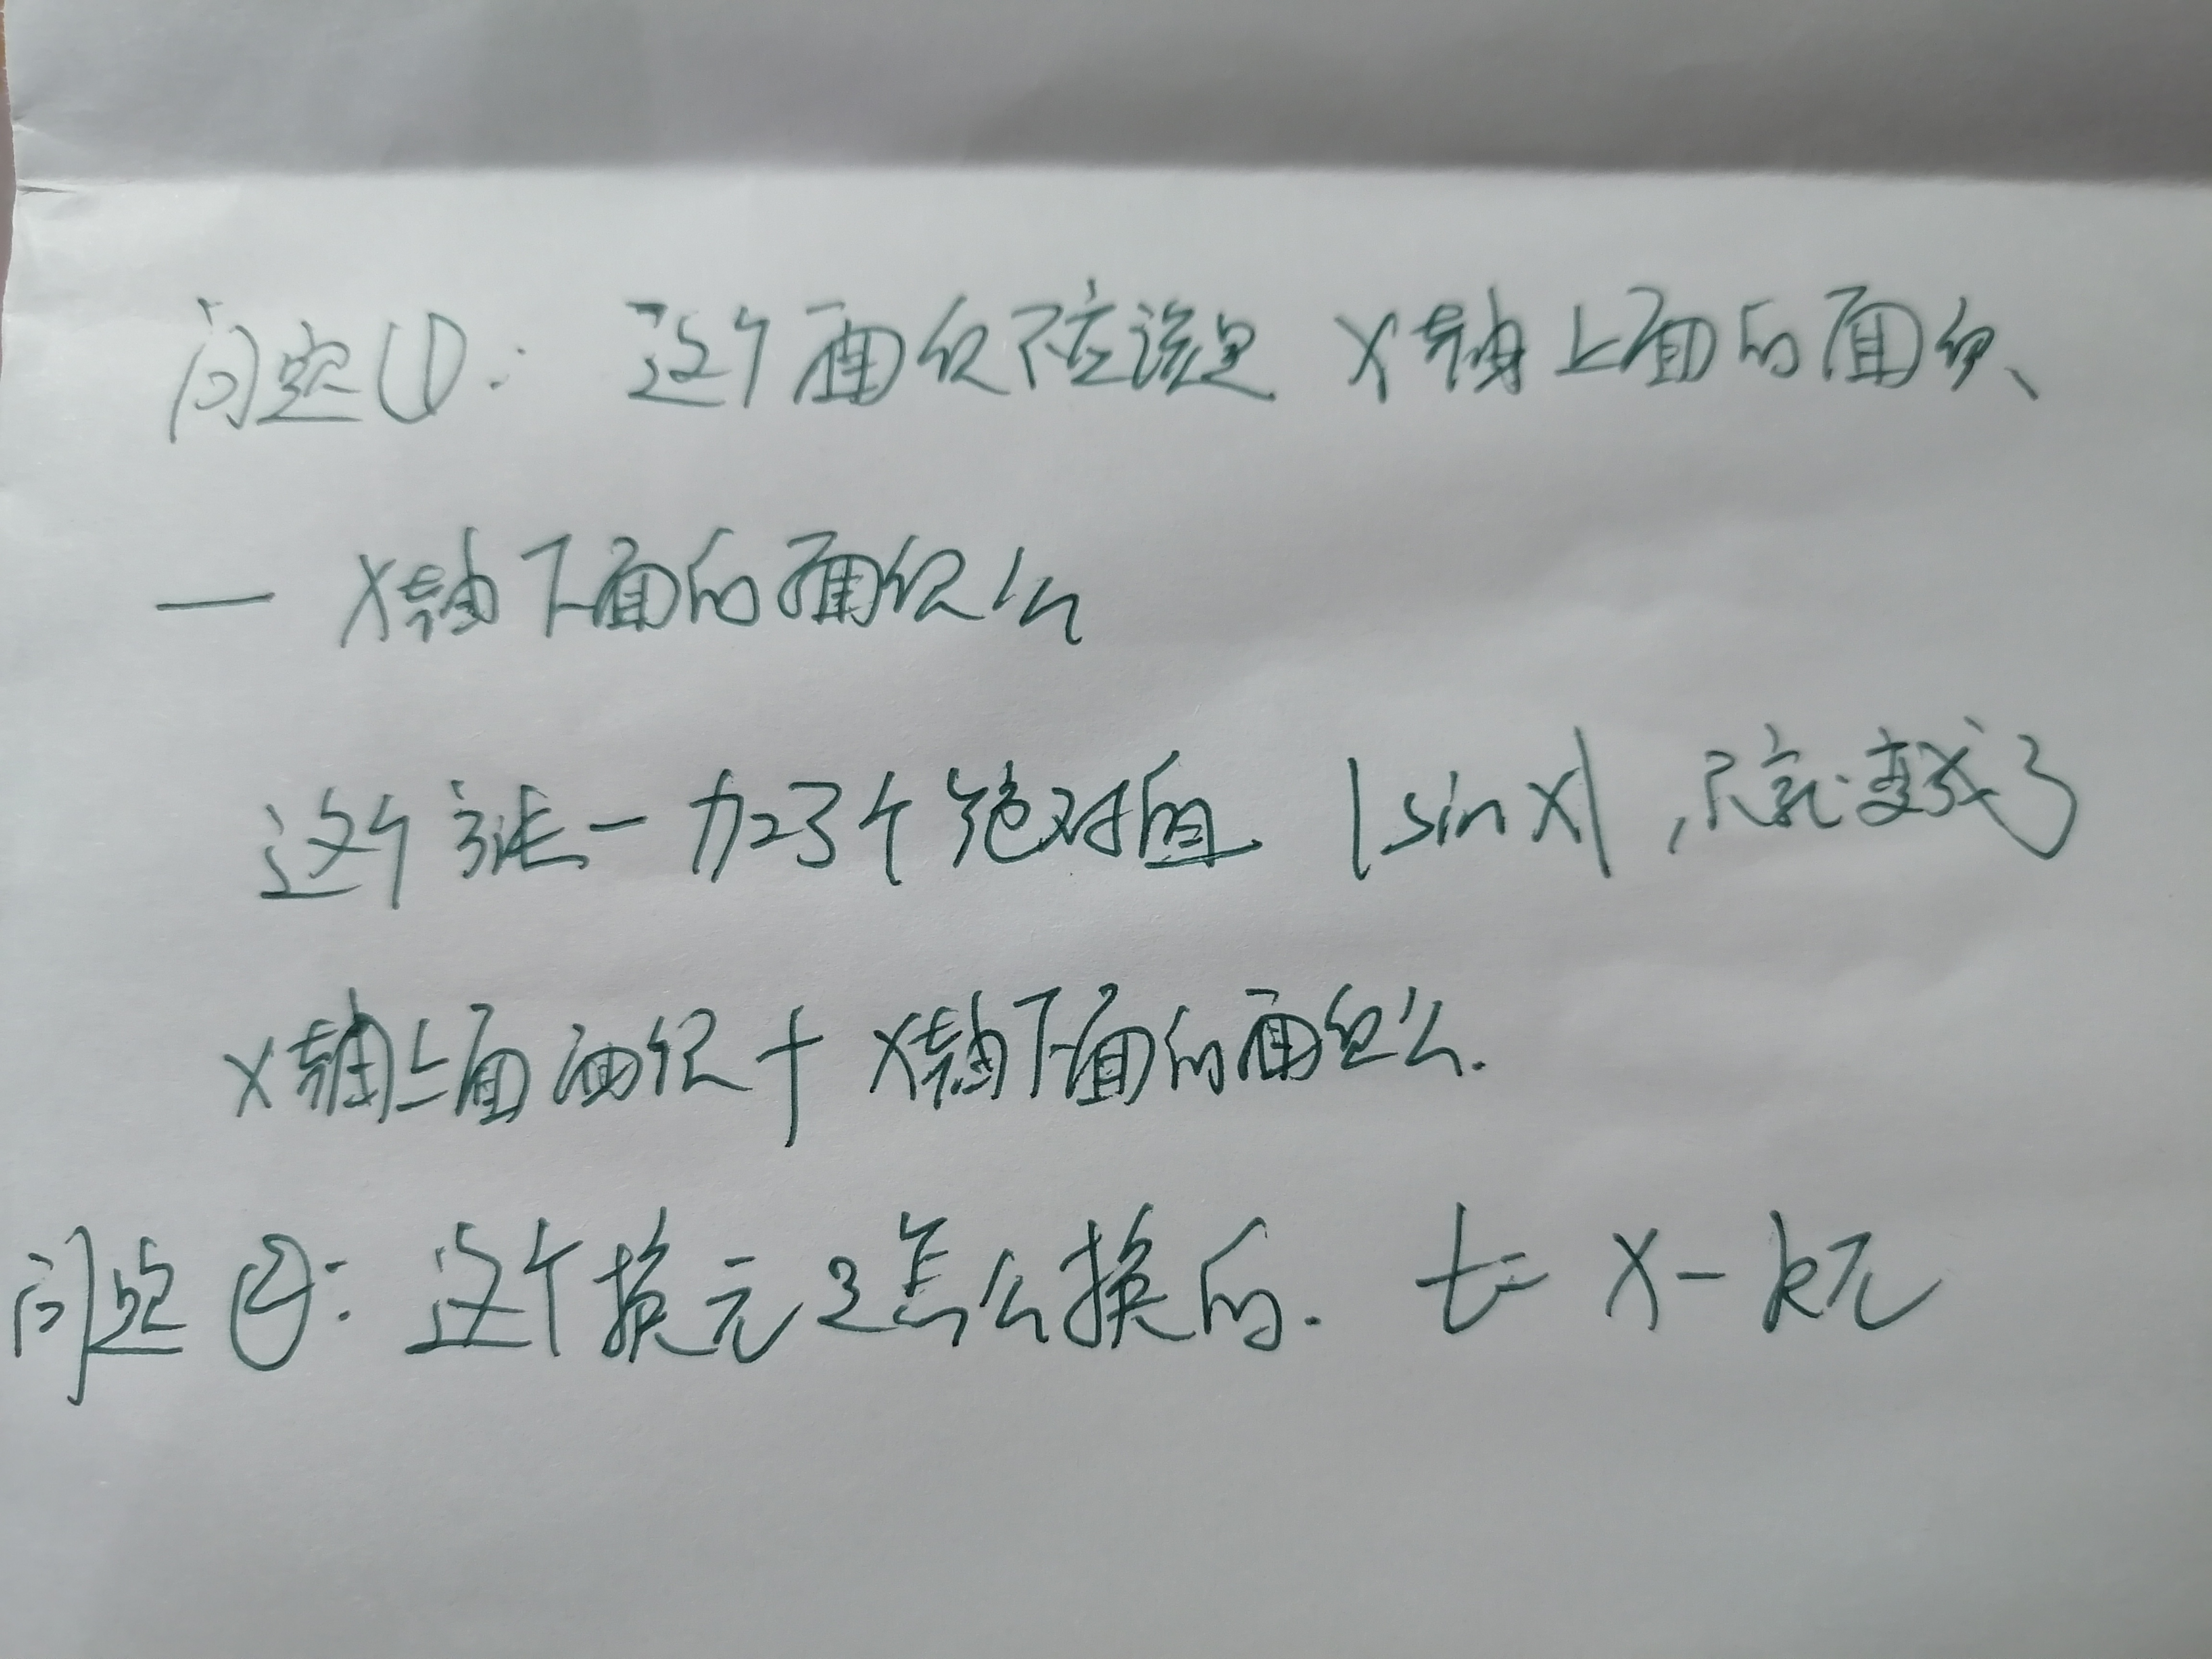 问题①: 这个面积不应该是 x轴上面的面积、
— x轴下面的面积么
这个方法一加了个绝对值 |sin x|,不就变成了
x轴上面面积 + x轴下面的面积么.
问题②: 这个换元是怎么换的. t= x-kπ